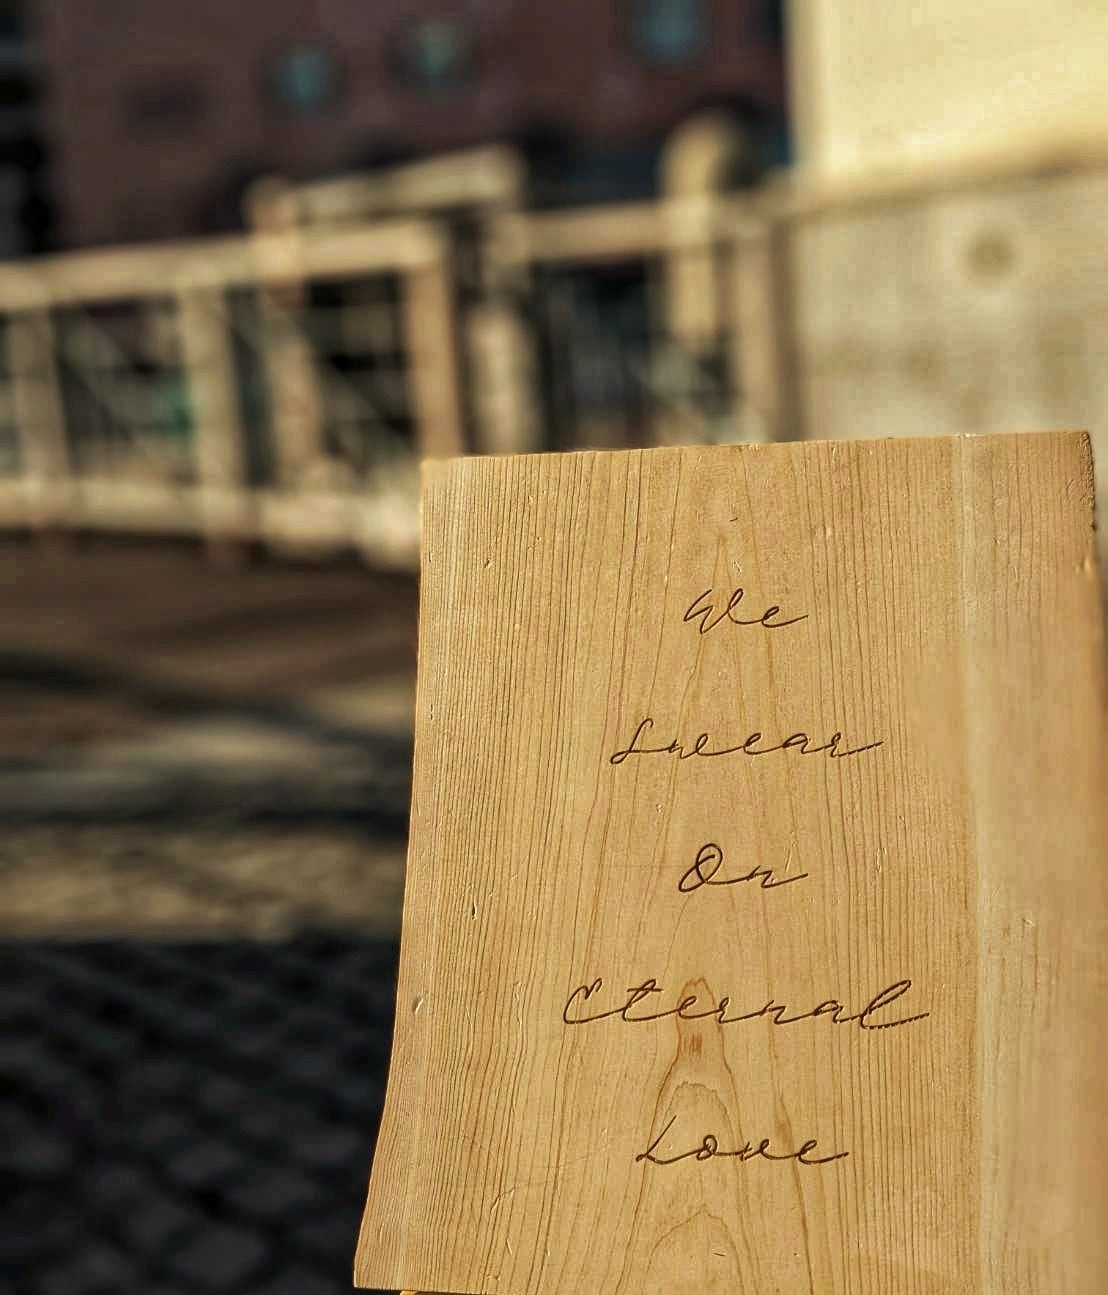 We
Swear
On
Eternal
Love